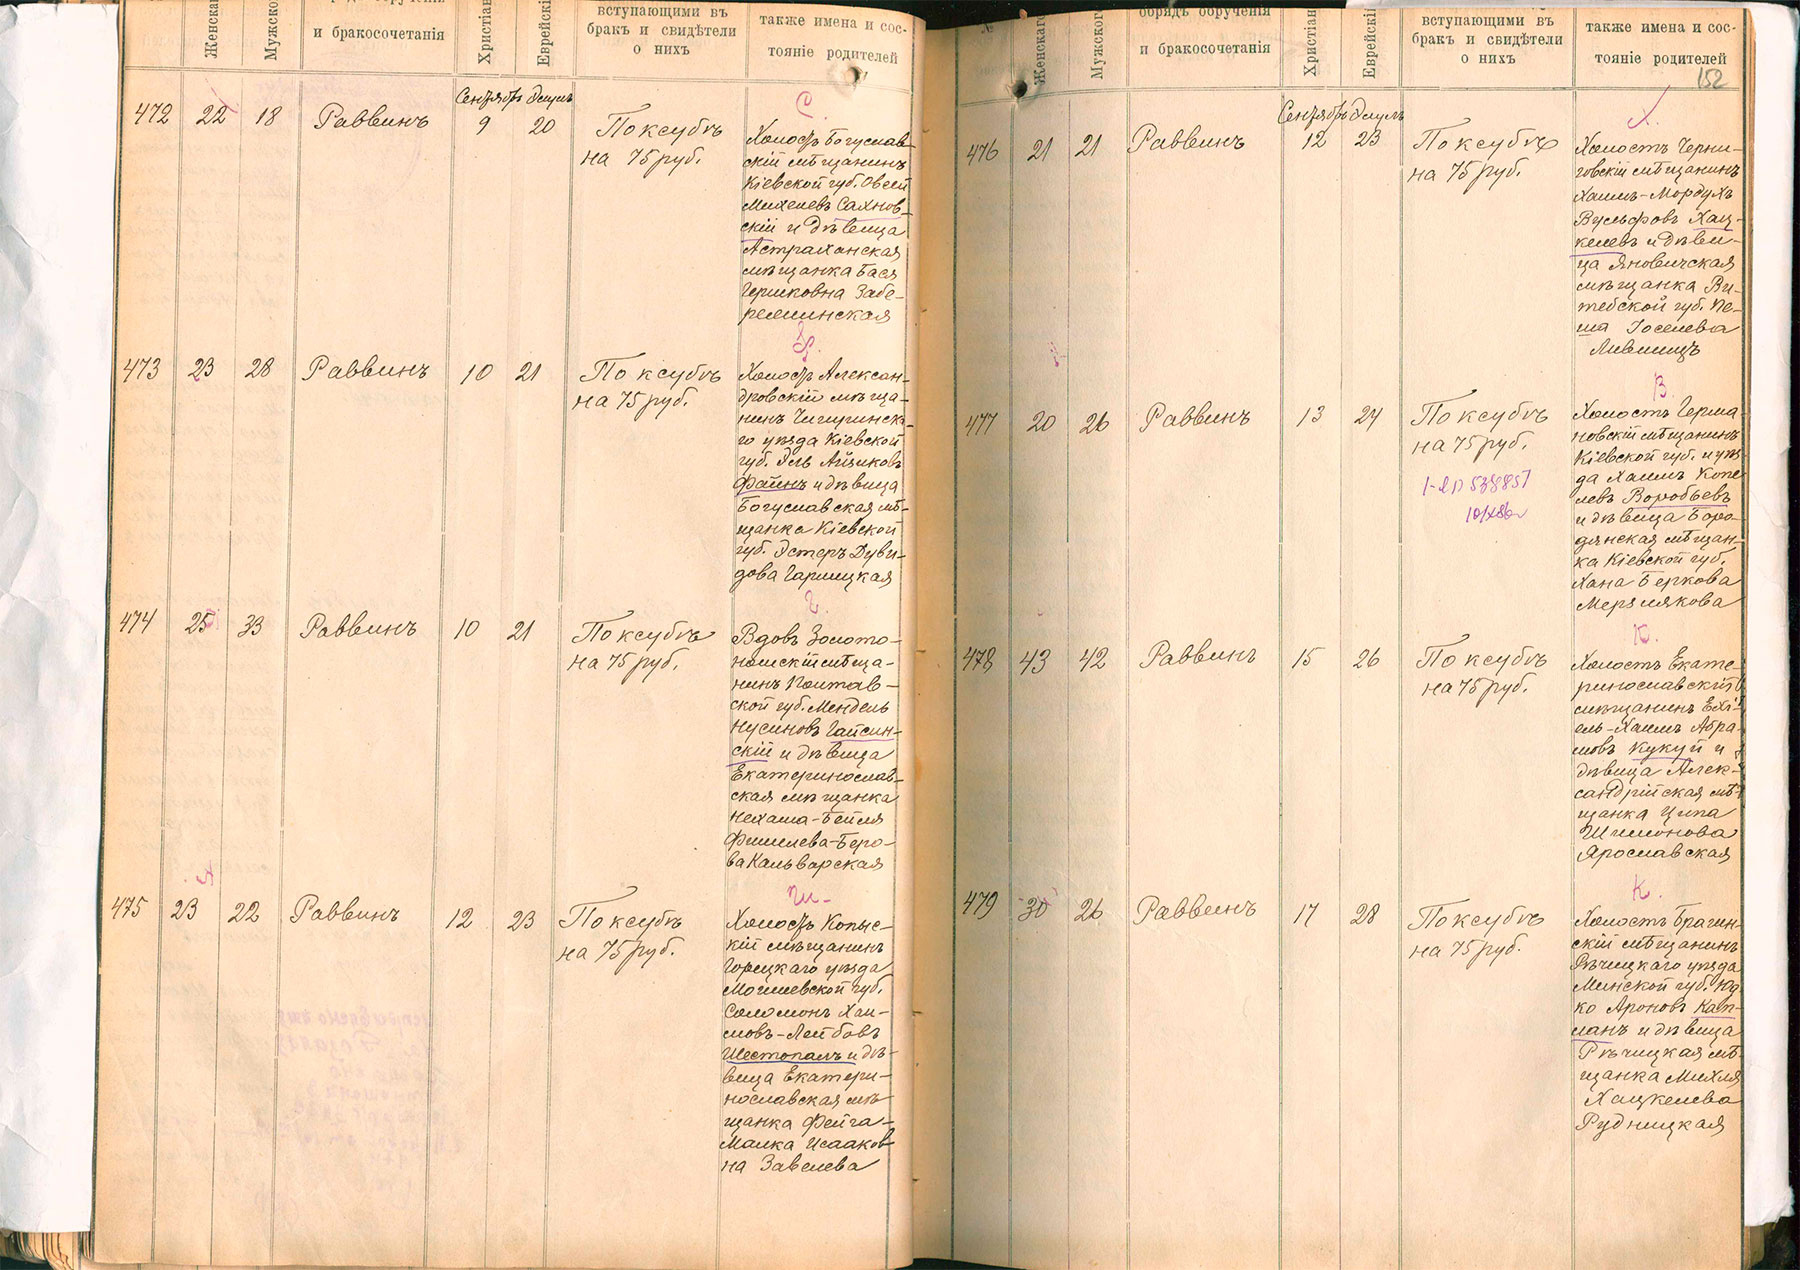 Женска
Мужско
и бракосочетанія
Христіан
Еврейскі
вступающими въ
бракъ и свидѣтели
о нихъ
также имена и сос-
тояніе родителей
472
22
18
Раввинъ
Сентябрь
9
Элулъ
20
По ксубѣ
на 75 руб.
С.
Холостъ Богуслав-
скій мѣщанинъ
Кіевской губ. Овсей
Михелевъ Сахнов-
скій и дѣвица
Астраханская
мѣщанка Бася
Гершковна Забе-
режинская
473
23
28
Раввинъ
10
21
По ксубѣ
на 75 руб.
Ф.
Холостъ Алексан-
дровскій мѣща-
нинъ Чигиринска-
го уѣзда Кіевской
губ. Эль Айзиковъ
Файнъ и дѣвица
Богуславская мѣ-
щанка Кіевской
губ. Эстеръ Дуви-
дова Гарницкая
474
25
33
Раввинъ
10
21
По ксубѣ
на 75 руб.
Г.
Вдовъ Золото-
ношскій мѣща-
нинъ Полтав-
ской губ. Мендель
Нусиновъ Гайсин-
скій и дѣвица
Екатеринослав-
ская мѣщанка
Нехама-Бейля
Фишелева-Беро-
ва Кальварская
475
23
22
Раввинъ
12
23
По ксубѣ
на 75 руб.
Ш.
Холостъ Копыс-
кій мѣщанинъ
Горецкаго уѣзда
Могилевской губ.
Соломонъ Хаи-
мовъ-Лейбовъ
Шестопалъ и дѣ-
вица Екатери-
нославская мѣ-
щанка Фейга-
Малка Исааков-
на Завелева
Женскаго
Мужского
обрядъ обрученія
и бракосочетанія
Христіан
Еврейскі
вступающими въ
бракъ и свидѣтели
о нихъ
также имена и сос-
тояніе родителей
152
476
21
21
Раввинъ
Сентябрь
12
Элулъ
23
По ксубѣ
на 75 руб.
Х.
Холостъ Черни-
говскій мѣщанинъ
Хаимъ-Мордухъ
Вульфовъ Хац-
келевъ и дѣви-
ца Яновичская
мѣщанка Ви-
тебской губ. Пе-
ша Іоселева
Лившицъ
477
20
26
Раввинъ
13
24
По ксубѣ
на 75 руб.
В.
Холостъ Герма-
новскій мѣщанинъ
Кіевской губ. и уѣз
да Хаимъ Копе-
левъ Воробьевъ
и дѣвица Боро-
дянская мѣщан-
ка Кіевской губ.
Хана Беркова
Мерзлякова
478
43
42
Раввинъ
15
26
По ксубѣ
на 75 руб.
К.
Холостъ Екате-
ринославскій
мѣщанинъ Ехі-
ель-Хаимъ Абра-
мовъ Кукуй и
дѣвица Алек-
сандрійская мѣ-
щанка Ципа
Шимонова
Ярославская
479
30
26
Раввинъ
17
28
По ксубѣ
на 75 руб.
К.
Холостъ Брагин-
скій мѣщанинъ
Рѣчицкаго уѣзда
Минской губ. Юд
ко Ароновъ Кап-
ланъ и дѣвица
Рѣчицкая мѣ-
щанка Михля
Хацкелева
Рудницкая